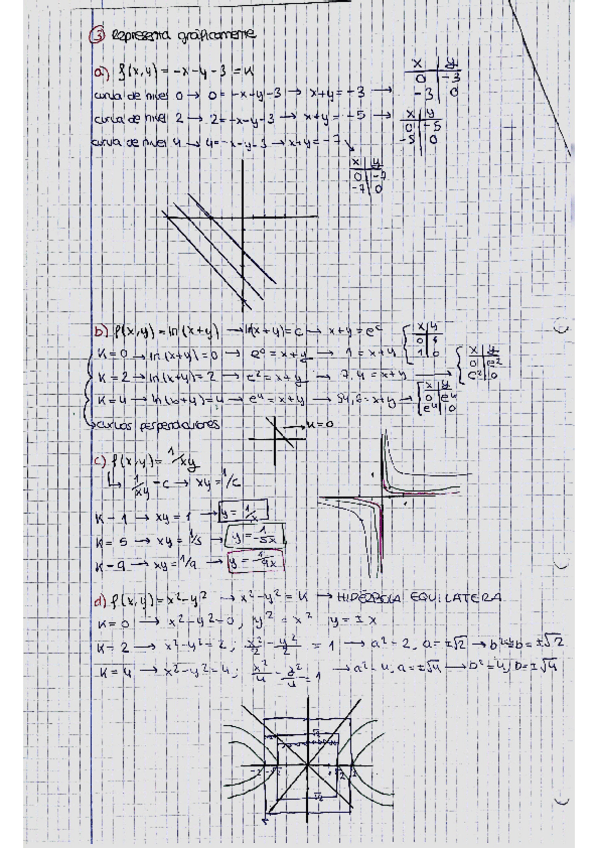 ③ Representa gráficamente
a) f(x,y) = -x-y-3 = K
x | y
0 | -3
-3 | 0
curva de nivel 0 → 0 = -x-y-3 → x+y = -3 →
curva de nivel 2 → 2 = -x-y-3 → x+y = -5 →
x | y
0 | -5
-5 | 0
curva de nivel 4 → 4 = -x-y-3 → x+y = -7
x | y
0 | -7
-7 | 0
b) f(x,y) = ln(x+y) → ln(x+y) = c → x+y = e^c
K=0 → ln(x+y) = 0 → e^0 = x+y → 1 = x+y
x | y
0 | 1
1 | 0
K=2 → ln(x+y) = 2 → e^2 = x+y → 7,4 = x+y →
x | y
0 | e^2
e^2 | 0
K=4 → ln(x+y) = 4 → e^4 = x+y → 54,6 = x+y →
x | y
0 | e^4
e^4 | 0
→ curvas perpendiculares
→ K=0
c) f(x,y) = 1/xy
↳ 1/xy = c → xy = 1/c
K-1 → xy = 1 → y = 1/x
K=5 → xy = 1/5 → y = 1/5x
K-9 → xy = 1/9 → y = 1/9x
d) f(x,y) = x²-y² → x²-y² = K → HIPÉRBOLA EQUILATERA
K=0 → x²-y²=0, y² = x² y = ±x
K=2 → x²-y²=2, x²/2 - y²/2 = 1 → a²=2, a=±√2 → b²=2 b=±√2
K=4 → x²-y²=4, x²/4 - y²/4 = 1 → a²=4, a=±√4 → b²=4, b=±√4